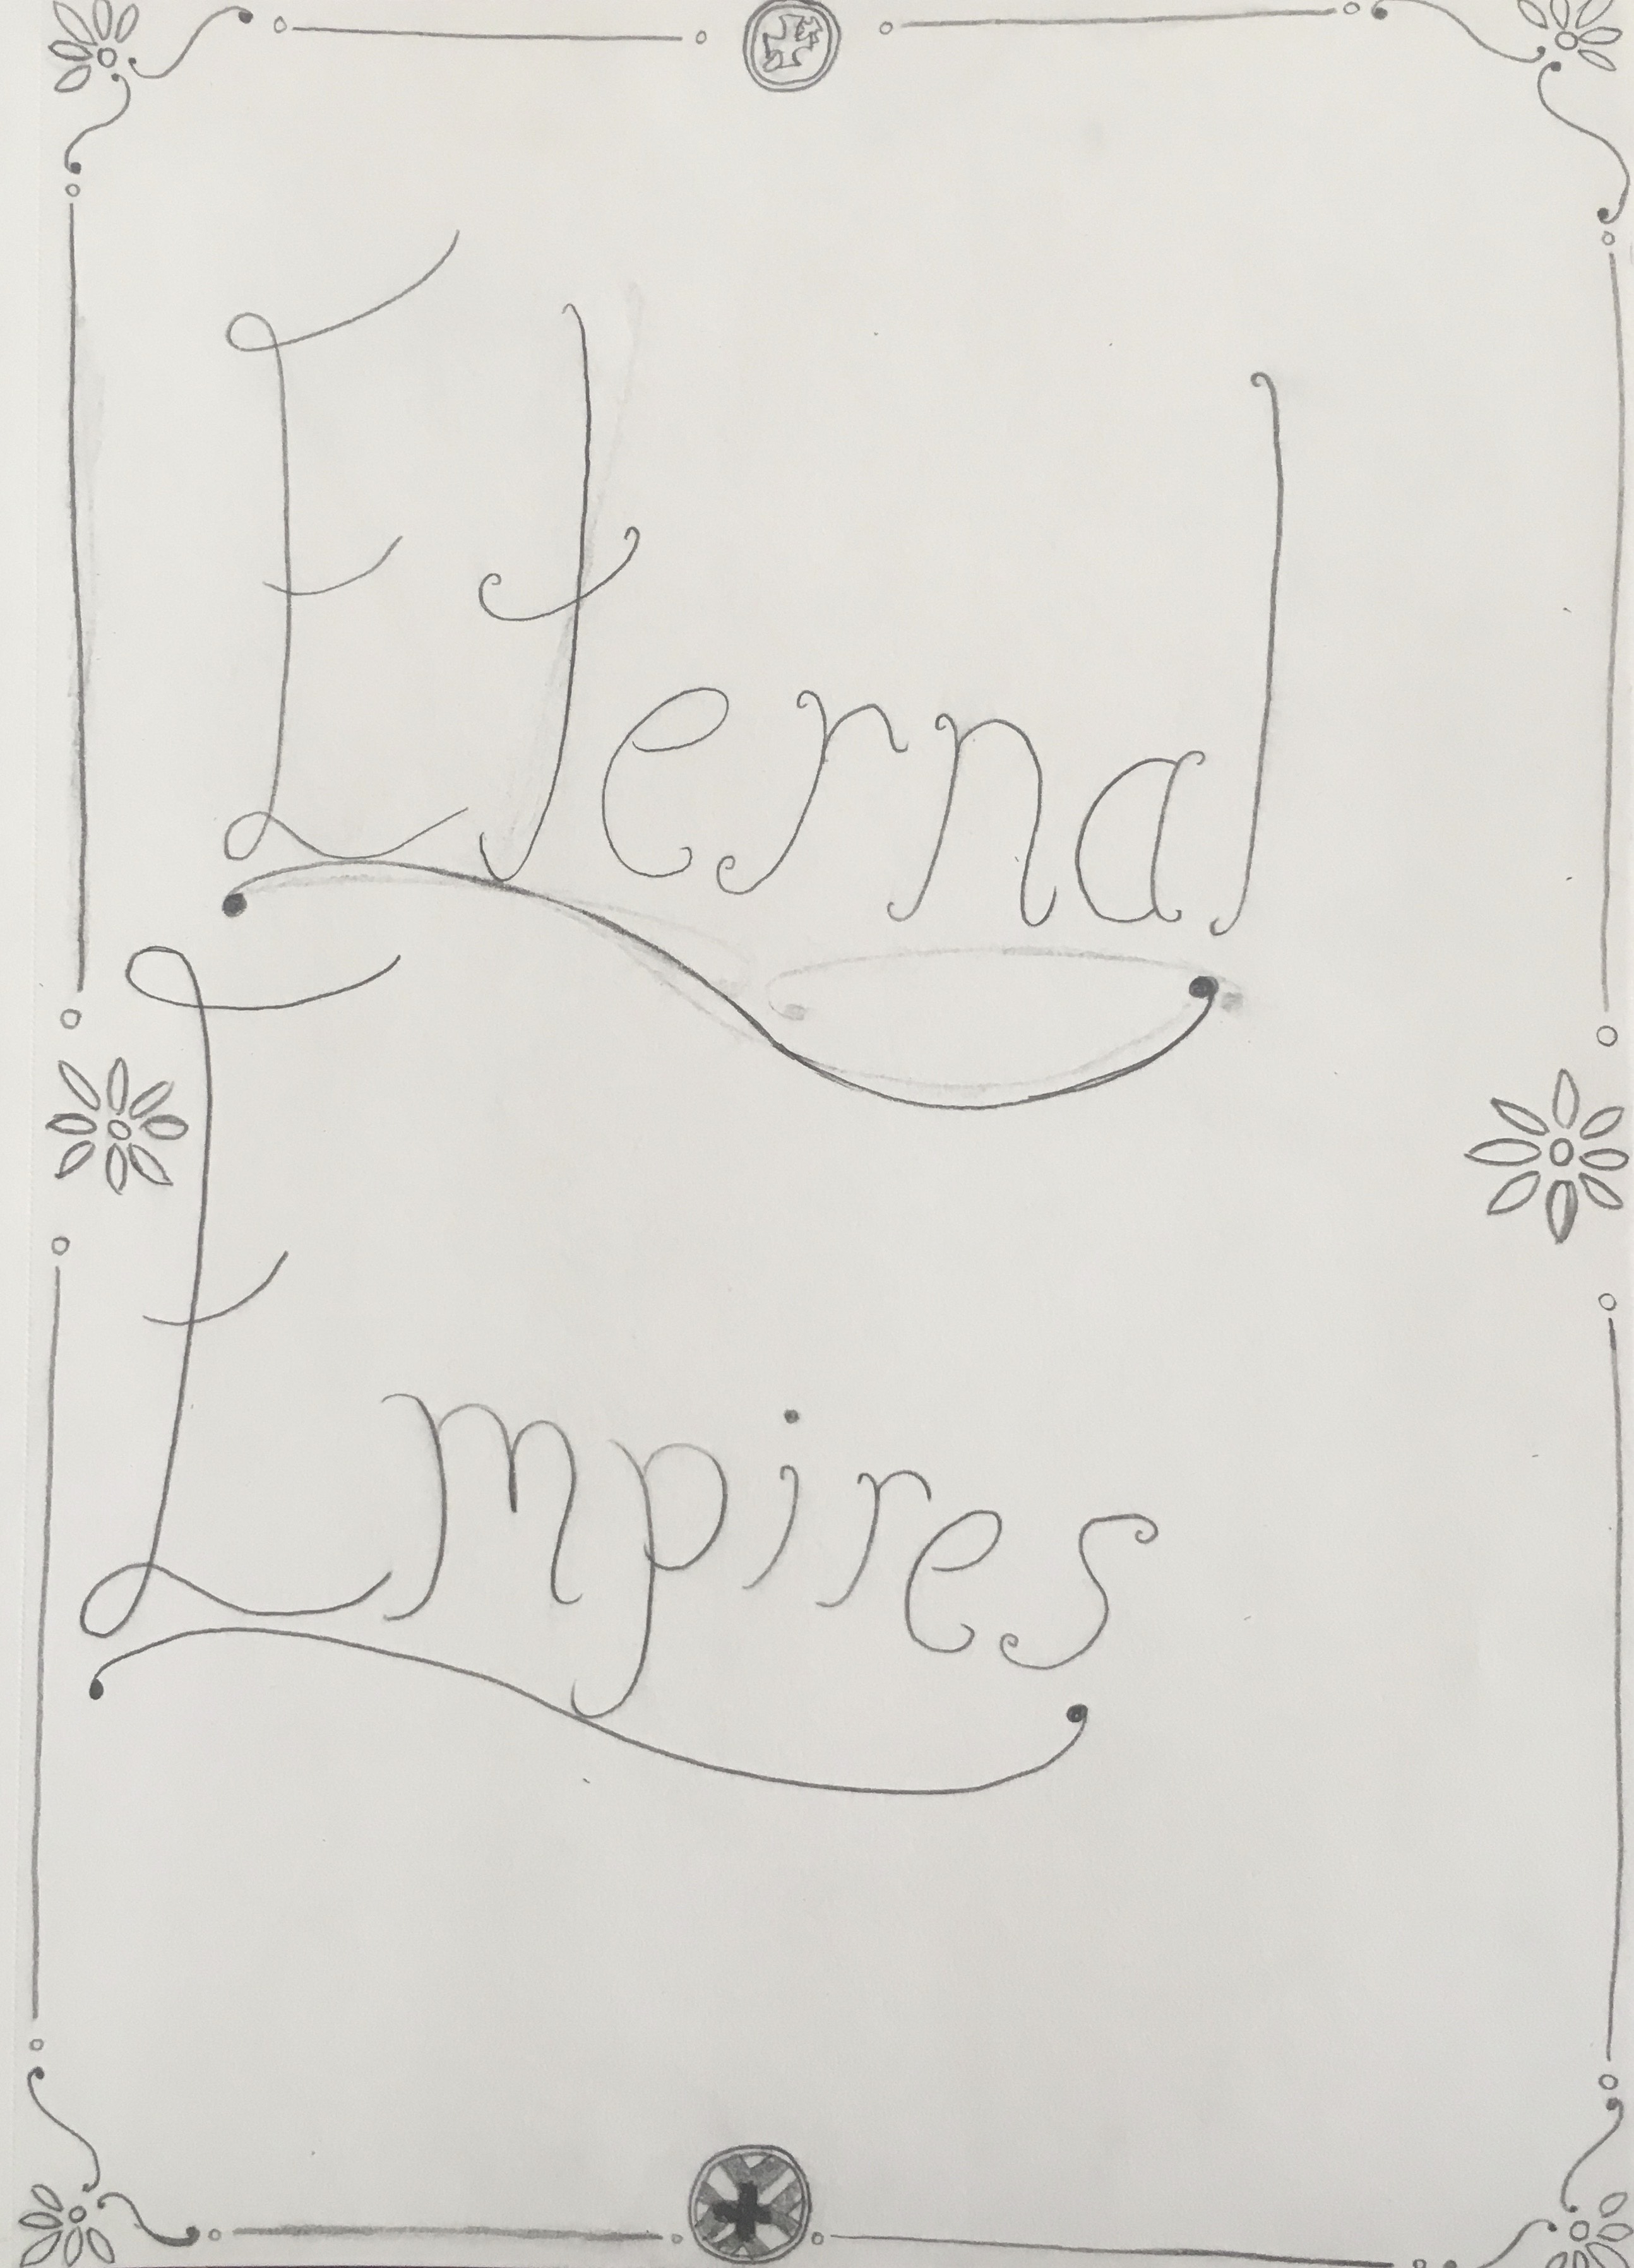 Eternal
Empires